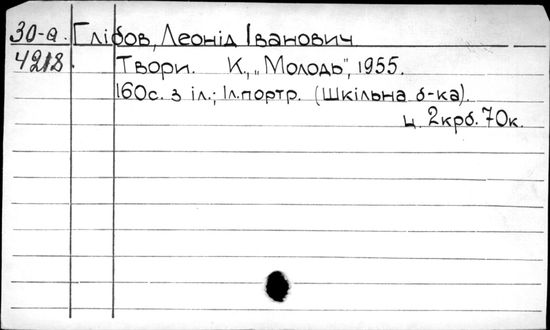 30-а. Глібов, Леонід Іванович
4218. Твори. К., „Молодь", 1955.
160с. з іл.; 1л.портр. (Шкільна б-ка).
ц. 2крб. 70к.